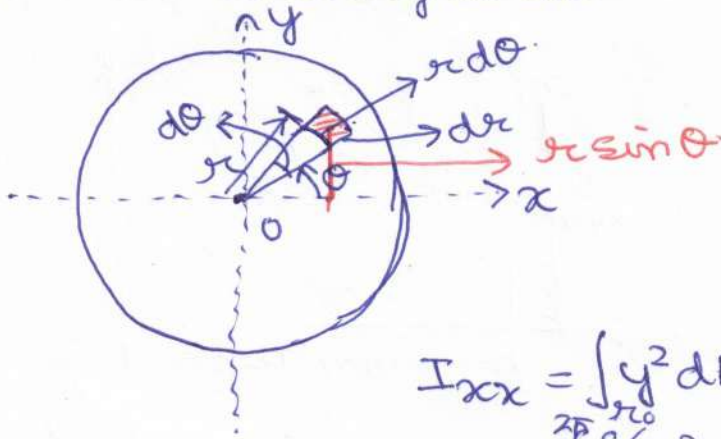 y
r dθ
dθ
dr
r
θ
r sin θ
x
O
I_{xx} = ∫ y² d